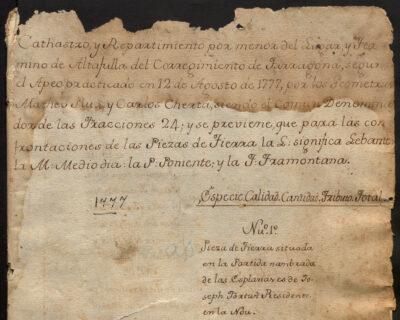 Cathastro, y Repartimiento por menor del Lugar y Ter-
mino de Altafulla del Corregimiento de Tarragona, segun
el Apeo practicado en 12 de Agosto de 1777, por los Geometras
Matheu Rull, y Carlos Cherta, siendo el Comun Denomina-
dor de las Fracciones 24; y se previene, que para las con-
frontaciones de las Piezas de Tierra la L: significa Lebante
la M: Mediodia: la P: Poniente; y la T: Tramontana.
1777
Especie. Calidad. Cantidad. Tributo. Total.
Nu.º 1.º
Pieza de Tierra situada
en la Partida nombrada
de las Esplanas es de Jo-
seph Fortuñ Residente
en la Nou.